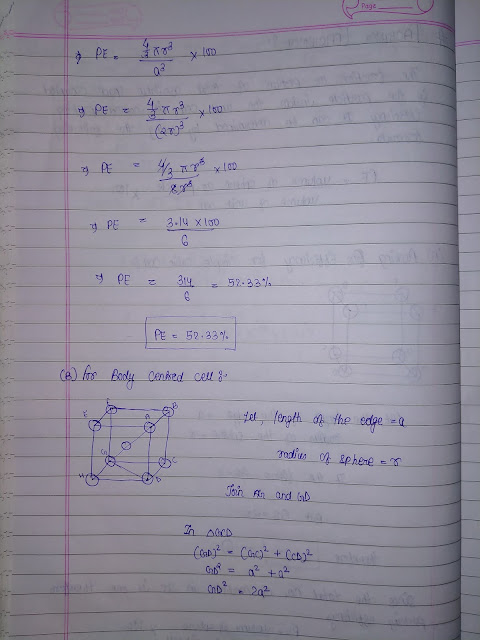 Page
⇒ PE = 4/3 πr³ / a³ × 100
⇒ PE = 4/3 πr³ / (2r)³ × 100
⇒ PE = 4/3 πr³ / 8r³ × 100
⇒ PE = 3.14 × 100 / 6
⇒ PE = 314 / 6 = 52.33%
PE = 52.33%
(B) For Body Centred cell :-
F
B
E
A
G
C
H
D
Let, length of the edge = a
radius of sphere = r
Join AG and GD
In △GCD
(GD)² = (GC)² + (CD)²
GD² = a² + a²
GD² = 2a²